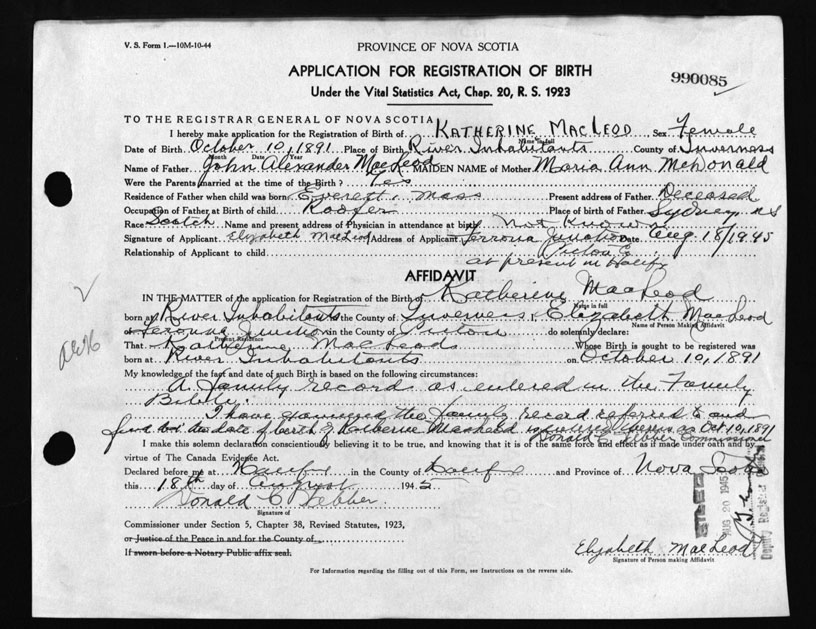 V. S. Form 1.—10M-10-44
PROVINCE OF NOVA SCOTIA
APPLICATION FOR REGISTRATION OF BIRTH
Under the Vital Statistics Act, Chap. 20, R. S. 1923
990085
TO THE REGISTRAR GENERAL OF NOVA SCOTIA
I hereby make application for the Registration of Birth of KATHERINE MACLEOD Sex Female
Name in full
Date of Birth October 10, 1891 Place of Birth River Inhabitants County of Inverness
Month Date Year
Name of Father John Alexander MacLeod MAIDEN NAME of Mother Maria Ann McDonald
Were the Parents married at the time of the Birth? Yes
Residence of Father when child was born Everett, Mass Present address of Father Deceased
Occupation of Father at Birth of child Roofer Place of birth of Father Sydney NS
Race Scotch Name and present address of Physician in attendance at birth Not Known
Signature of Applicant Elizabeth MacLeod Address of Applicant Ferrona Junction Date Aug 18/1945
Relationship of Applicant to child Pictou Co
at present in Halifx
AFFIDAVIT
IN THE MATTER of the application for Registration of the Birth of Katherine MacLeod
Name in full
born at River Inhabitants the County of Inverness, Elizabeth MacLeod
Name of Person Making Affidavit
of Ferrona Junction in the County of Pictou do solemnly declare:
Present Residence
That Katherine MacLeods Whose Birth is sought to be registered was
born at River Inhabitants on October 10, 1891
My knowledge of the fact and date of such Birth is based on the following circumstances:
A family record as entered in the Family
Bible.
I have examined the family record referred to and
find the date of birth of Katherine MacLeod is given as Oct 10, 1891
Donald C Commissioner
I make this solemn declaration conscientiously believing it to be true, and knowing that it is of the same force and effect as if made under oath and by
virtue of The Canada Evidence Act.
Declared before me at Halifx in the County of Halifx and Province of Nova Scotia
this 18th day of August 1945
Donald C
Signature of
Commissioner under Section 5, Chapter 38, Revised Statutes, 1923,
or Justice of the Peace in and for the County of
If sworn before a Notary Public affix seal.
AUG 20 1945
Deputy Registrar
Elizabeth MacLeod
Signature of Person making Affidavit
For Information regarding the filling out of this Form, see Instructions on the reverse side.